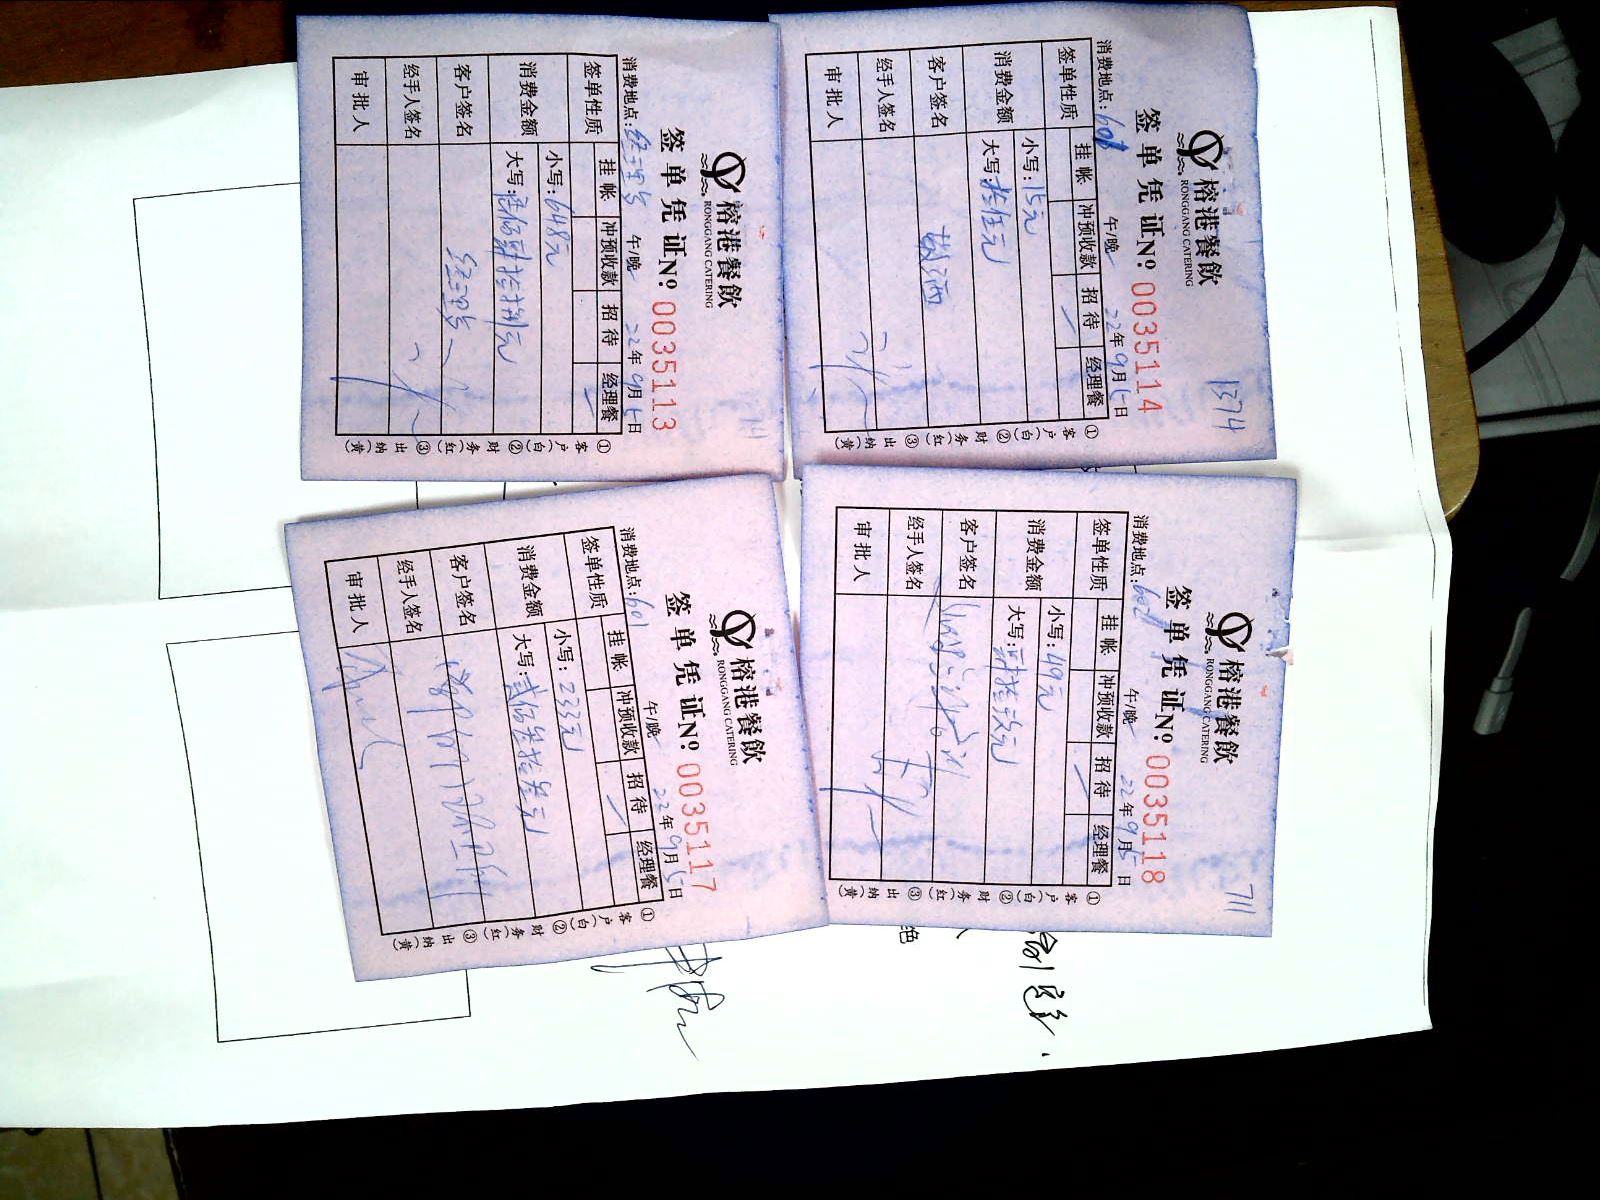 榕港餐飲
RONGGANG CATERING
签单凭证 №: 0035113
消费地点: 经理餐 午/晚 22年9月15日
签单性质 挂帐 冲预收款 招待 经理餐
消费金额 小写: 648元
大写: 陆佰肆拾捌元
客户签名 经理餐
经手人签名
审批人
①客户(白) ②财务(红) ③出纳(黄)
榕港餐飲
RONGGANG CATERING
签单凭证 №: 0035114
消费地点: 608 午/晚 22年9月15日
签单性质 挂帐 冲预收款 招待 经理餐
消费金额 小写: 15元
大写: 拾伍元
客户签名
经手人签名
审批人
①客户(白) ②财务(红) ③出纳(黄)
1374
榕港餐飲
RONGGANG CATERING
签单凭证 №: 0035117
消费地点: 601 午/晚 22年9月15日
签单性质 挂帐 冲预收款 招待 经理餐
消费金额 小写: 233元
大写: 贰佰叁拾叁元
客户签名
经手人签名
审批人
①客户(白) ②财务(红) ③出纳(黄)
榕港餐飲
RONGGANG CATERING
签单凭证 №: 0035118
消费地点: 午/晚 22年9月15日
签单性质 挂帐 冲预收款 招待 经理餐
消费金额 小写: 49元
大写: 肆拾玖元
客户签名
经手人签名
审批人
①客户(白) ②财务(红) ③出纳(黄)
711